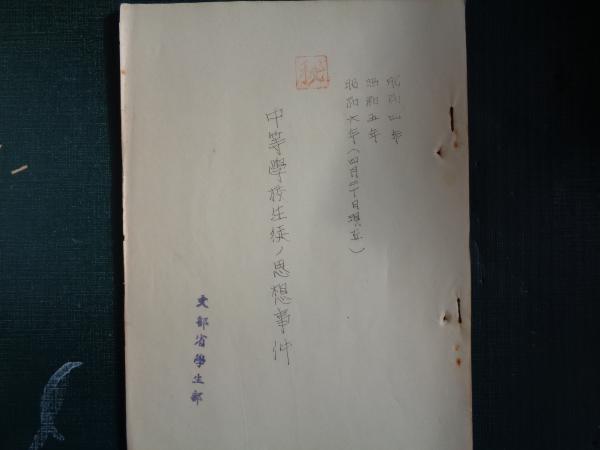 昭和四年
昭和五年
昭和六年(四月二十日現在)
秘
中等學校生徒ノ思想事件
文部省學生部